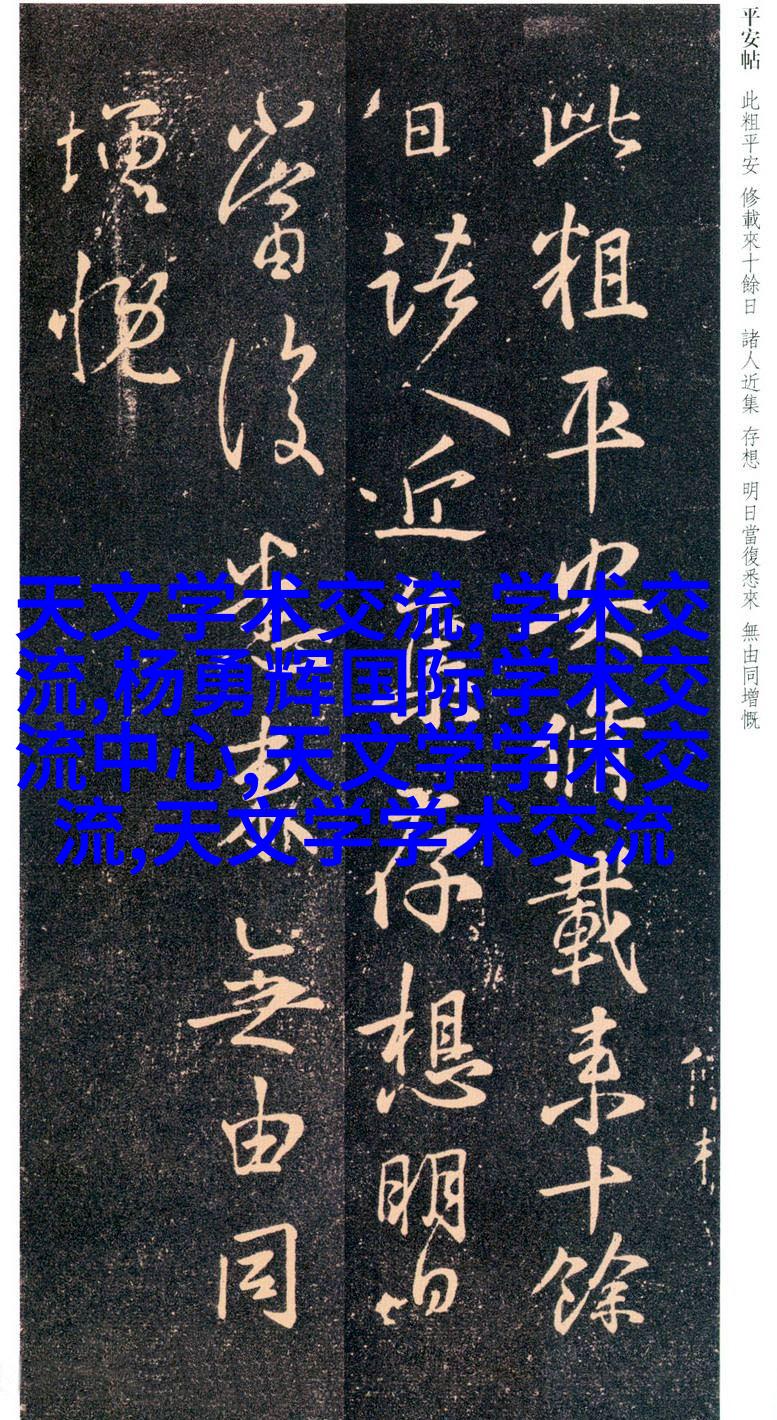 平安帖 此粗平安 修載來十餘日 諸人近集 存想 明日當復悉來 無由同增慨
此粗平安脩載来十餘
日諸人近集存想明日
當復悉来無由同
增慨
天文学术交流,学术交
流,杨勇辉国际学术交
流中心,天文学学术交
流,天文学学术交流